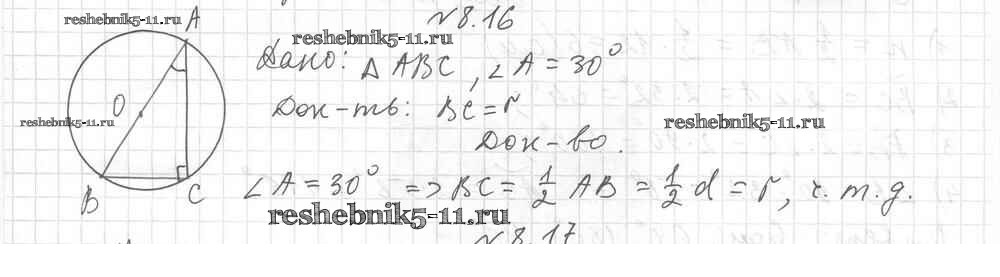 №8.16
reshebnik5-11.ru
A
reshebnik5-11.ru
Дано: △ ABC, ∠A = 30°
O
Док-ть: BC = r
reshebnik5-11.ru
reshebnik5-11.ru
Док-во.
B C
∠A = 30° => BC = 1/2 AB = 1/2 d = r, ч.т.д.
reshebnik5-11.ru
№8.17